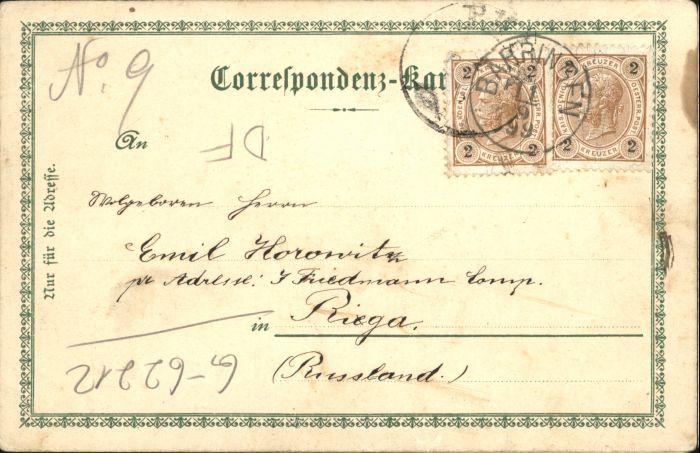 No. 9
Correspondenz-Kar
An
DF
Nur für die Adresse.
Wolgeboren Herrn
Emil Horowitz
pr Adresse: J Friedmann Comp.
in Riega.
(Russland.)
G-62212
2 2 2 2
KREUZER
2 KREUZER 2
2 KREUZER 2
99